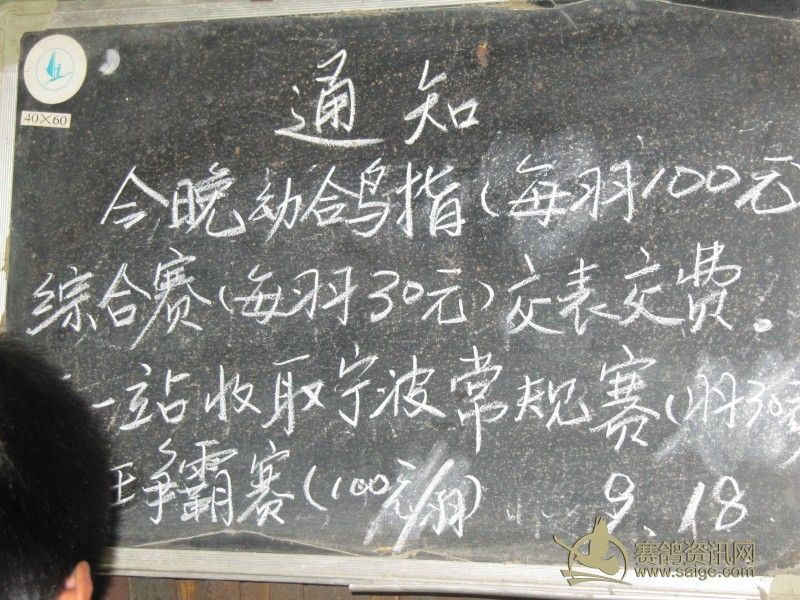 40×60
通知
今晚幼鸽指(每羽100元)
综合赛(每羽30元)交表交费。
一站收取宁波常规赛(羽30元
王争霸赛(100元/羽) 9.18
赛鸽资讯网
www.saige.com